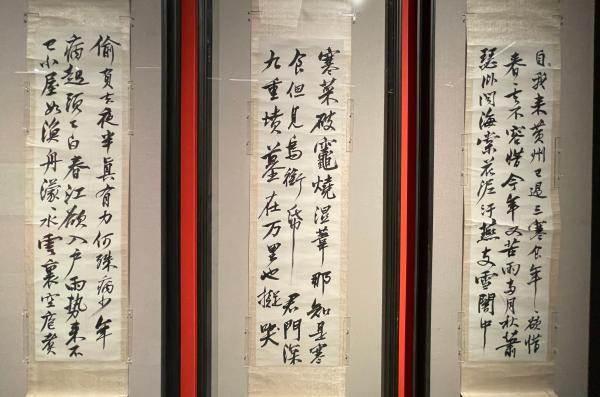 自我来黄州已過三寒食年〻欲惜
春去不容惜今年又苦雨两月秋蕭
瑟卧闻海棠花泥汙燕支雪闇中
偷負去夜半真有力何殊病少年
病起頭已白春江欲入户雨势来不
已小屋如漁舟濛水雲裏空庖煮
寒菜破竈燒湿葦那知是寒
食但見烏銜帋君門深
九重墳墓在万里也擬哭